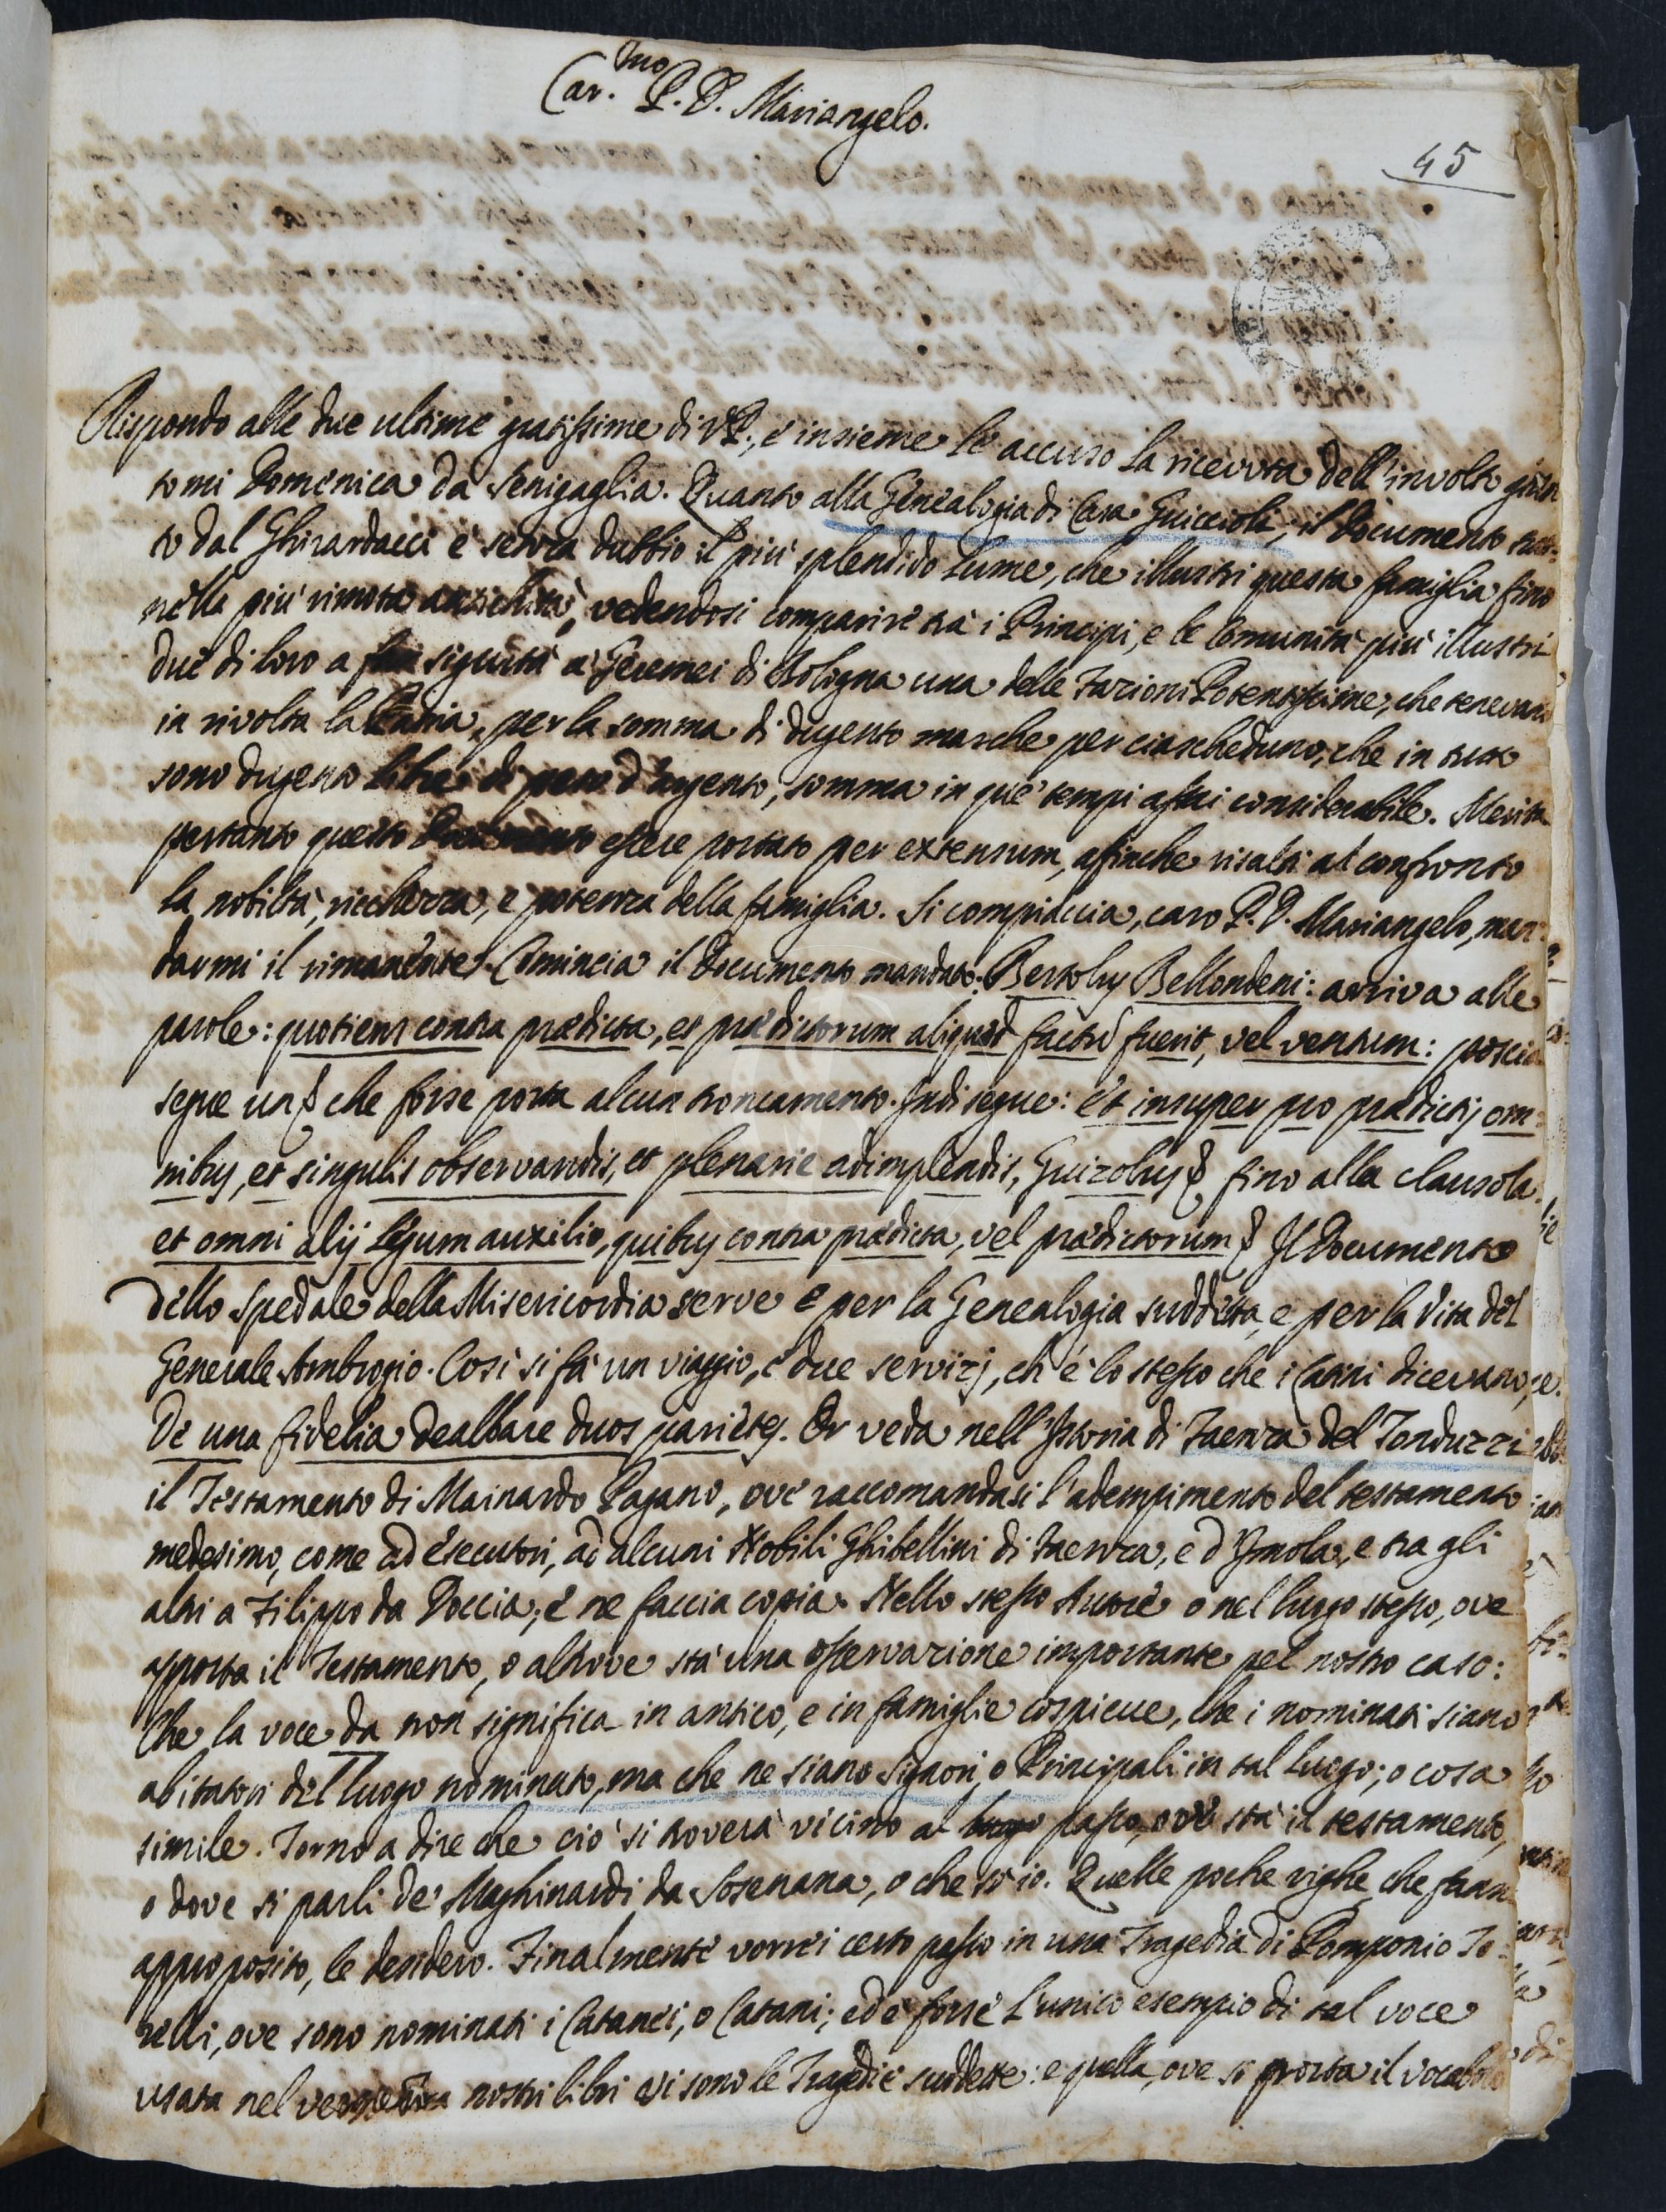 Car.mo P. D. Mariangelo.
45
Rispondo alle due ultime gratissime di V.P., e insieme le accuso la ricevuta dell'involto giun
tomi Domenica da Senigaglia. Quanto alla Genealogia di Casa Guiccioli, il Documento trat-
to dal Ghirardacci è senza dubbio il più splendido lume, che illustri questa famiglia fino
nella più rimota antichità, vedendosi comparire trà i Principi, e le Comunità più illustri
due di loro a far sigurtà a' Geremei di Bologna una delle Fazioni Potentissime, che tenevano
in rivolta la Patria, per la somma di dugento marche per ciascheduno, che in tutto
sono dugento libre di peso d'argento, somma in que' tempi assai considerabile. Merita
pertanto questo Documento essere portato per extensum, affinche risalti al confronto
la nobiltà, ricchezza, e potenza della famiglia. Si compiaccia, caro P. D. Mariangelo, man-
darmi il rimanente. Comincia il Documento mandato: Bertolus Bellondeni: arriva alle
parole: quotiens contra praedicta, et praedictorum aliquod factũ fuerit, vel ventum: poscia
segue un & che forse porta alcun troncamento. Indi segue: et insuper pro praedictis om-
nibus, et singulis observandis, et plenarie adimplendis, Guizolus & fino alla clausola.
et omni alij Legum auxilio, quibus contra praedicta, vel praedictorum & Il Documento
dello Spedale della Misericordia serve e per la Genealogia suddetta, e per la Vita del
Generale Ambrogio. Così si fà un viaggio, e due servizj, ch'è lo stesso che i Latini dicevano,
De una fidelia dealbare duos parietes. Or veda nell'Istoria di Faenza del Tonduzzi
il Testamento di Mainardo Pagano, ove raccomandasi l'adempimento del testamento
medesimo, come ad esecutori, ad alcuni Nobili Ghibellini di Faenza, e d'Imola, e tra gli
altri a Filippo da Doccia; e ne faccia copia. Nello stesso Autore o nel luogo stesso, ove
apporta il Testamento, o altrove stà una osservazione importante pel nostro caso:
Che la voce da non significa in antico, e in famiglie cospicue, che i nominati siano
abitatori del luogo nominato, ma che ne siano Signori, o Principali in tal luogo; o cosa
simile. Torno a dire che ciò si troverà vicino al passo, ove stà il testamento,
o dove si parli de' Maghinardi da Sosenana, o che sò io. Quelle poche righe, che fanno
approposito, le desidero. Finalmente vorrei certo passo in una Tragedia di Pomponio To-
relli, ove sono nominati i Catanei, o Catani; ed è forse l'unico esempio di tal voce
usata nel verso. nostri libri vi sono le Tragedie suddette: e quella, ove si porta il vocabolo